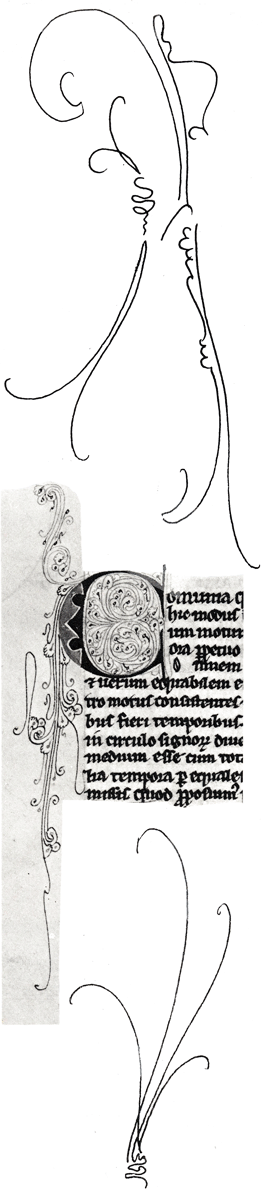 omnnia q
hic modus
um motum
ora ꝑpetuo
finem
⁊ uerum equabilem e
tro motus consistentes.
bus fieri temporibus.
in circulo signoꝝ diue
medium esse cum tot
lia tempora ꝑ equales
missis quod